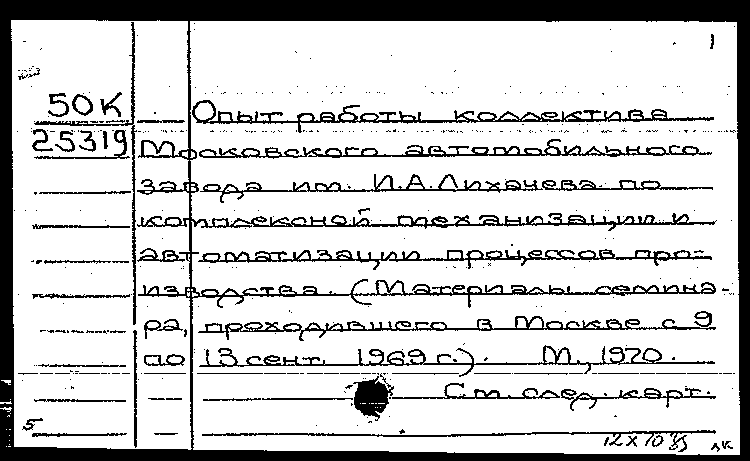 1
50К Опыт работы коллектива
25319 Московского автомобильного
завода им. И.А.Лихачева по
комплексной механизации и
автоматизации процессов про-
изводства. (Материалы семина-
ра, проходившего в Москве с 9
по 13 сент. 1969 г.). М., 1970.
См. след. карт.
5